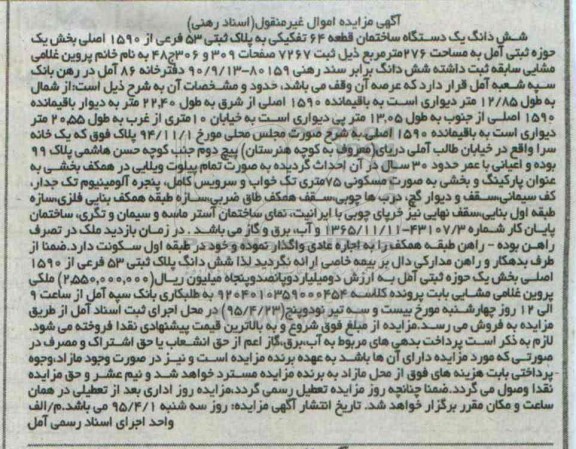 آگهی مزایده اموال غیرمنقول(اسناد رهنی)
شش دانگ یک دستگاه ساختمان قطعه ۶۴ تفکیکی به پلاک ثبتی ۵۳ فرعی از ۱۵۹۰ اصلی بخش یک
حوزه ثبتی آمل به مساحت ۲۷۶مترمربع ذیل ثبت ۷۲۶۷ صفحات ۳۰۹ و ۳۰۶ج۴۸ به نام خانم پروین غلامی
مشایی سابقه ثبت داشته شش دانگ برابر سند رهنی ۸۰۱۵۹-۹۰/۹/۱۳ دفترخانه ۸۶ آمل در رهن بانک
سپه شعبه آمل قرار دارد که عرصه آن وقف می باشد، حدود و مشخصات آن به شرح ذیل است:از شمال
به طول ۱۲/۸۵ متر دیواری است به باقیمانده ۱۵۹۰ اصلی از شرق به طول ۲۲،۴۰ متر به دیوار باقیمانده
۱۵۹۰ اصلی از جنوب به طول ۱۳،۰۵ متر پی دیواری است به خیابان ۱۰متری از غرب به طول ۲۰،۵۵ متر
دیواری است به باقیمانده ۱۵۹۰ اصلی به شرح صورت مجلس محلی مورخ ۹۴/۱۱/۱ پلاک فوق که یک خانه
سرا واقع در خیابان طالب آملی دریای(معروف به کوچه هنرستان) پیچ دوم جنب کوچه حسن هاشمی پلاک ۹۹
بوده و اعیانی با عمر حدود ۳۰ سال در آن احداث گردیده به صورت تمام پیلوت ویلایی در همکف بخشی به
عنوان پارکینگ و بخشی به صورت مسکونی ۷۵متری تک خواب و سرویس کامل، پنجره آلومینیوم تک جدار،
کف سیمانی،سقف و دیوار گچ، درب ها چوبی،سقف همکف طاق ضربی،سازه طبقه همکف بنایی فلزی،سازه
طبقه اول بنایی،سقف نهایی نیز خرپای چوبی با ایرانیت، نمای ساختمان آستر ماسه و سیمان و تگری، ساختمان
پایان کار شماره ۴۳۱۰۷/۳-۱۳۶۵/۱۱/۱۱ و آب، برق و گاز می باشد . در زمان بازدید ملک در تصرف
راهن بوده - راهن طبقه همکف را به اجاره عادی واگذار نموده و خود در طبقه اول سکونت دارد.ضمنا از
طرف بدهکار و راهن مدارکی دال بر بیمه خاصی ارائه نگردید لذا شش دانگ پلاک ثبتی ۵۳ فرعی از ۱۵۹۰
اصلی بخش یک حوزه ثبتی آمل به ارزش دومیلیاردوپانصدوپنجاه میلیون ریال(۲،۵۵۰،۰۰۰،۰۰۰) ملکی
پروین غلامی مشایی بابت پرونده کلاسه ۹۲۰۴۰۱۰۳۵۹۰۰۰۴۵۴ به طلبکاری بانک سپه آمل از ساعت ۹
الی ۱۲ روز چهارشنبه مورخ بیست و سه تیر نودوپنج(۹۵/۴/۲۳) در محل اجرای ثبت اسناد آمل از طریق
مزایده به فروش می رسد.مزایده از مبلغ فوق شروع و به بالاترین قیمت پیشنهادی نقدا فروخته می شود.
لازم به ذکر است پرداخت بدهی های مربوط به آب،برق،گاز اعم از حق انشعاب یا حق اشتراک و مصرف در
صورتی که مورد مزایده دارای آن ها باشد به عهده برنده مزایده است و نیز در صورت وجود مازاد،وجوه
پرداختی بابت هزینه های فوق از محل مازاد به برنده مزایده مسترد خواهد شد و نیم عشر و حق مزایده
نقدا وصول می گردد.ضمنا چنانچه روز مزایده تعطیل رسمی گردد،مزایده روز اداری بعد از تعطیلی در همان
ساعت و مکان مقرر برگزار خواهد شد. تاریخ انتشار آگهی مزایده: روز سه شنبه ۹۵/۴/۱ می باشد.م/الف
واحد اجرای اسناد رسمی آمل